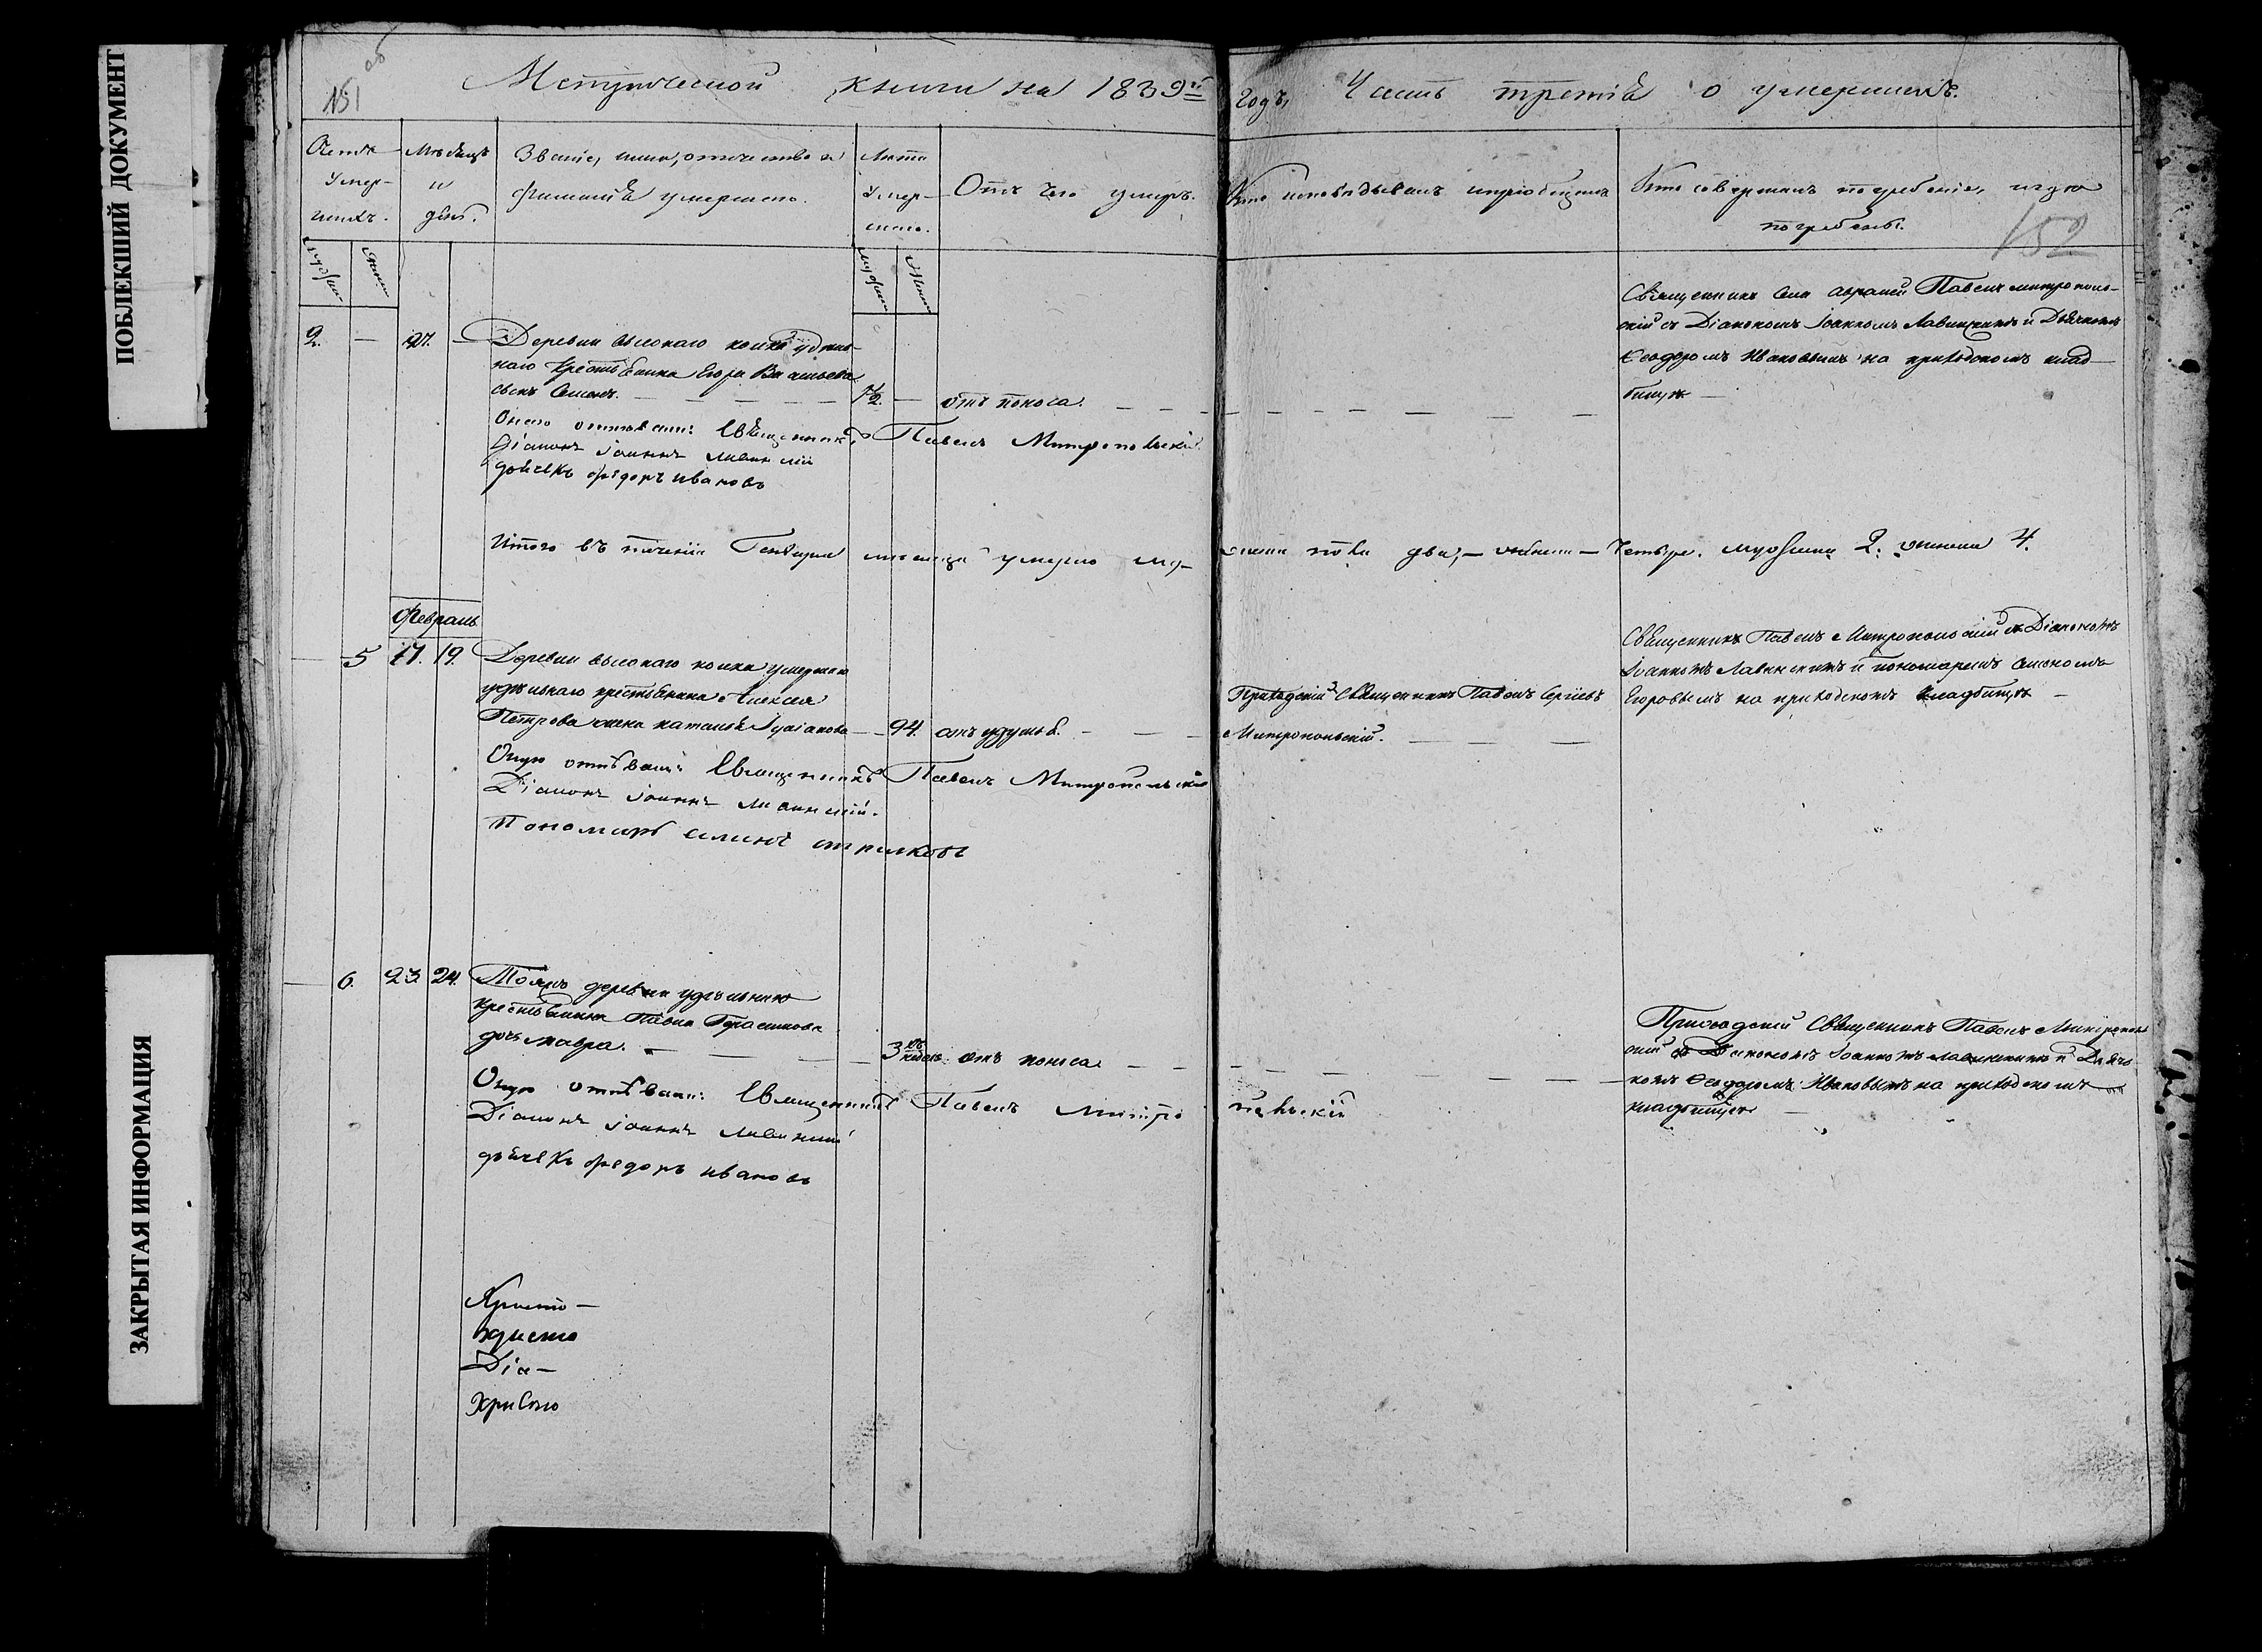 ПОБЛЕКШИЙ ДОКУМЕНТ
ЗАКРЫТАЯ ИНФОРМАЦИЯ
151
об
Метрической книги на 1839й годъ, Часть третія о умершихъ.
152
Счетъ умер-
шихъ.
Мѣсяцъ
и
день.
Званіе, имя, отчество и
фамилія умершаго.
Лѣта
умер-
шаго.
Отъ чего умеръ.
Кто исповѣдывалъ и пріобщалъ
Кто совершалъ погребеніе, и гдѣ
погребены.
2. — 27. —
Деревни высокаго колка удѣль-
наго крестьянина Егора Васильева
сынъ Семенъ. —
1/2. — отъ поноса. —
Священникъ Павелъ митрополь-
скій съ Діакономъ Іоанномъ Лавинскимъ и Дьячкомъ
Ѳеодоромъ Ивановымъ на приходскомъ клад-
бищѣ —
Онаго отпѣвали: Священникъ Павелъ Митропольскій
Діаконъ Іоаннъ Лавинскій
дьячекъ Ѳедоръ Ивановъ
Итого въ теченіи Генваря мѣсяца умерло му-
жеска пола два, — женска — четыре. мужеска 2. женска 4.
Февраль
5 17. 19.
Деревни высокаго колка умершаго
удѣльнаго крестьянина Алексея
Петрова жена наталья —
94. отъ удушья. —
Приходскій Священникъ Павелъ Сергіевъ
Митропольскій. —
Священникъ Павелъ Митропольскій съ Діакономъ
Іоанномъ Лавинскимъ и пономаремъ
Егоровымъ на приходскомъ кладбищѣ —
Оную отпѣвали: Священникъ Павелъ Митропольскій
Діаконъ Іоаннъ Лавинскій.
Пономарь
6. 23 24.
Тояжъ деревни удѣльнаго
крестьянина Павла Герасимова
дочь мавра. —
3 недѣль отъ поноса —
Приходскій Священникъ Павелъ Митрополь
скій съ Діакономъ Іоанномъ лавинскимъ и Дьяч-
комъ Ѳеодоромъ Ивановымъ на приходскомъ
кладбищѣ —
Оную отпѣвали: Священникъ Павелъ Митропольскій
Діаконъ Іоаннъ Лавинскій
дьячекъ Ѳедоръ Ивановъ
Діа-